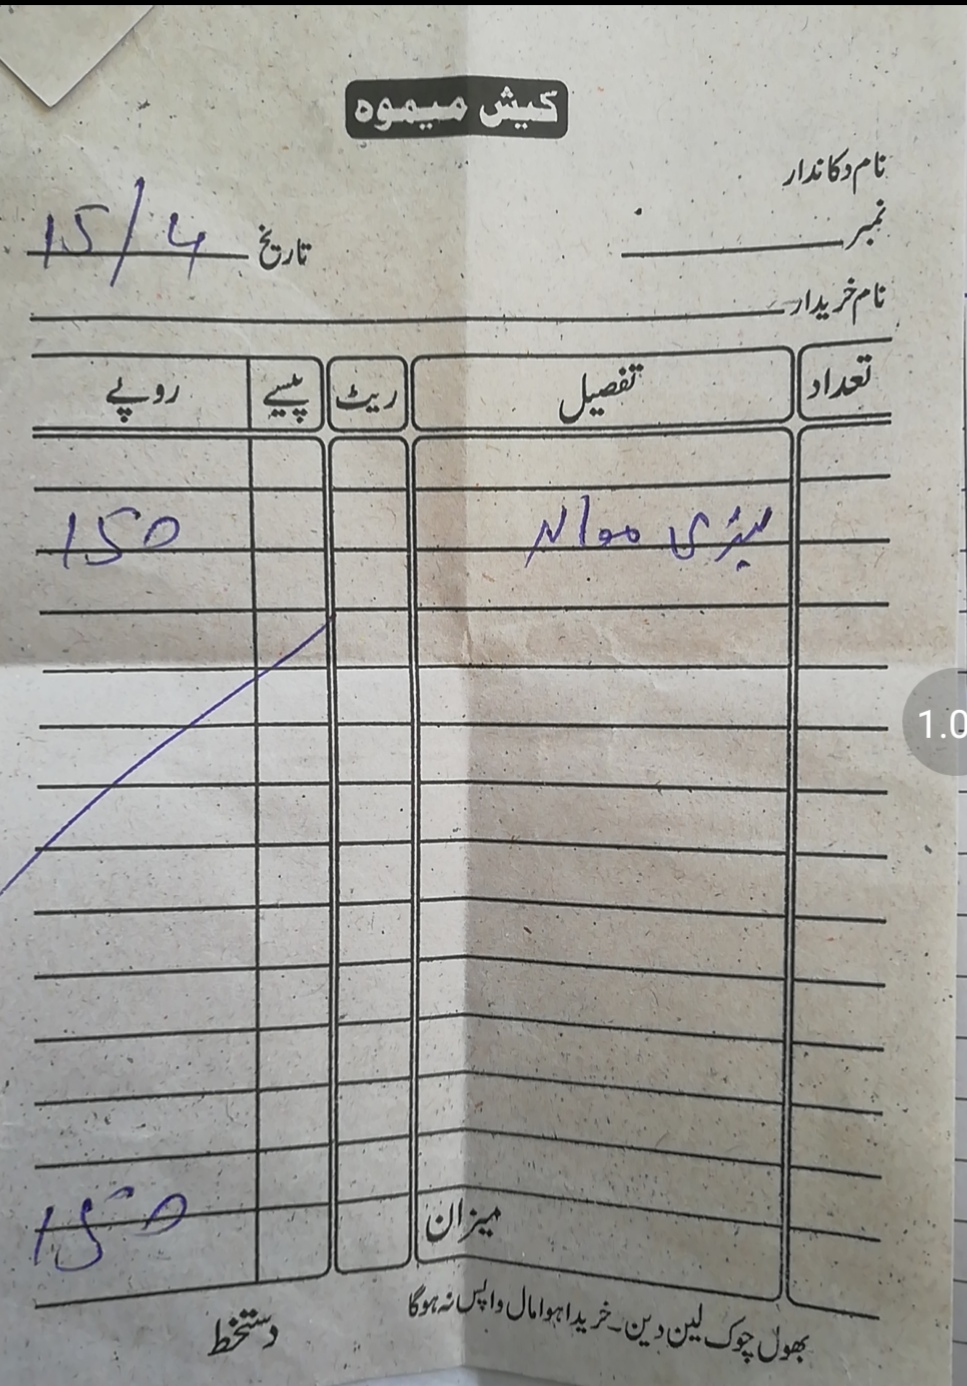 کیش میموہ
نام دکاندار
نمبر
تاریخ 15/4
نام خریدار
تعداد تفصیل ریٹ پیسے روپے
150
میزان 150
بھول چوک لین دین۔ خریدا ہوا مال واپس نہ ہوگا
دستخط
1.0